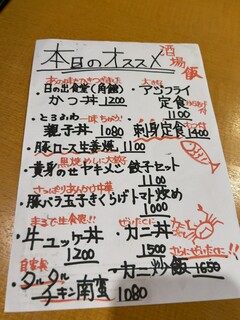 本日のオススメ
酒場飯
日の出食堂(角館)
かつ丼 1200
大きな
・アジフライ
定食
1100
・とろふわ
一味ちがう!
親子丼 1080
刺身定食 1400
・豚ロース生姜焼 1100
・黄身のせヤキメン 餃子セット
1100
さっぱりあんかけ中華
・豚バラ玉子きくらげトマト炒め
1000
まるで生食感!!
・牛ユッケ丼
1200
ぜいたくに
・カニ丼
1500
自家製
・タルタル
チキン南蛮 1080
さらにぜいたくに!!
・カニ炒飯 1650